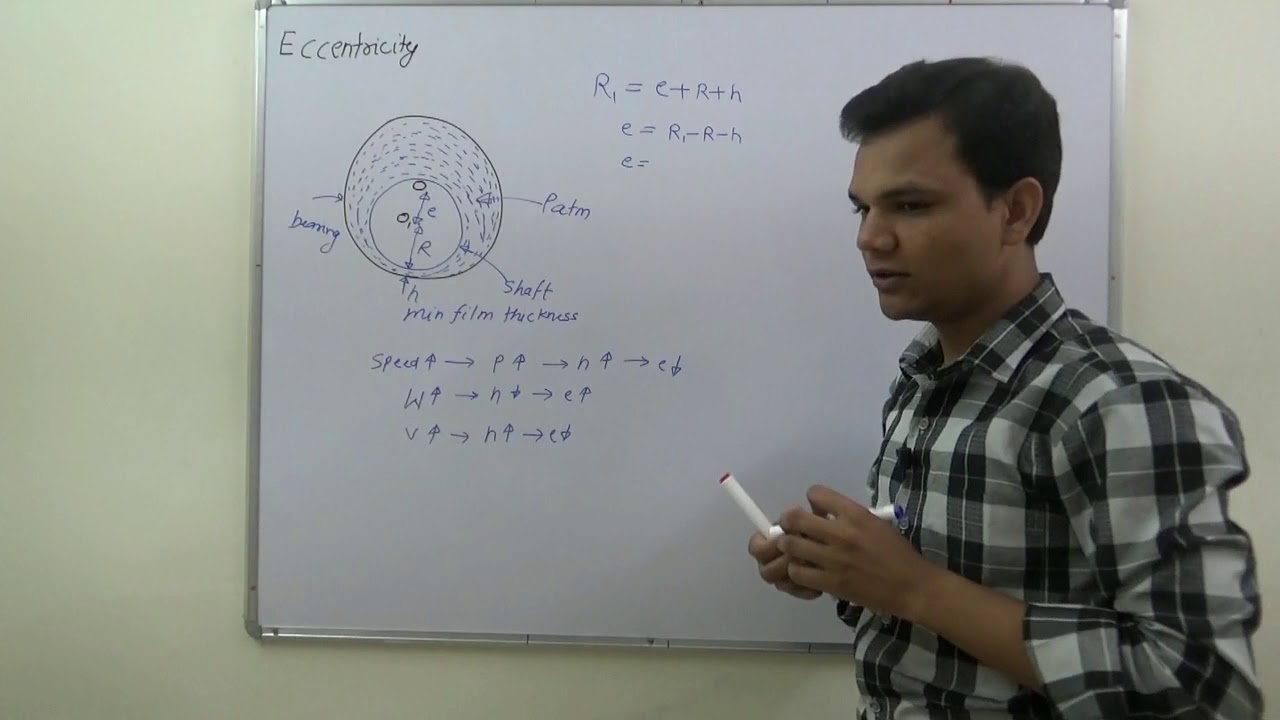 Eccentricity
R₁ = e+R+h
e = R₁-R-h
e =
O
e
O₁
R
bearing
Patm
Shaft
h
min film thickness
Speed↑ → P↑ → h↑ → e↓
W↑ → h↓ → e↑
V↑ → h↑ → e↓